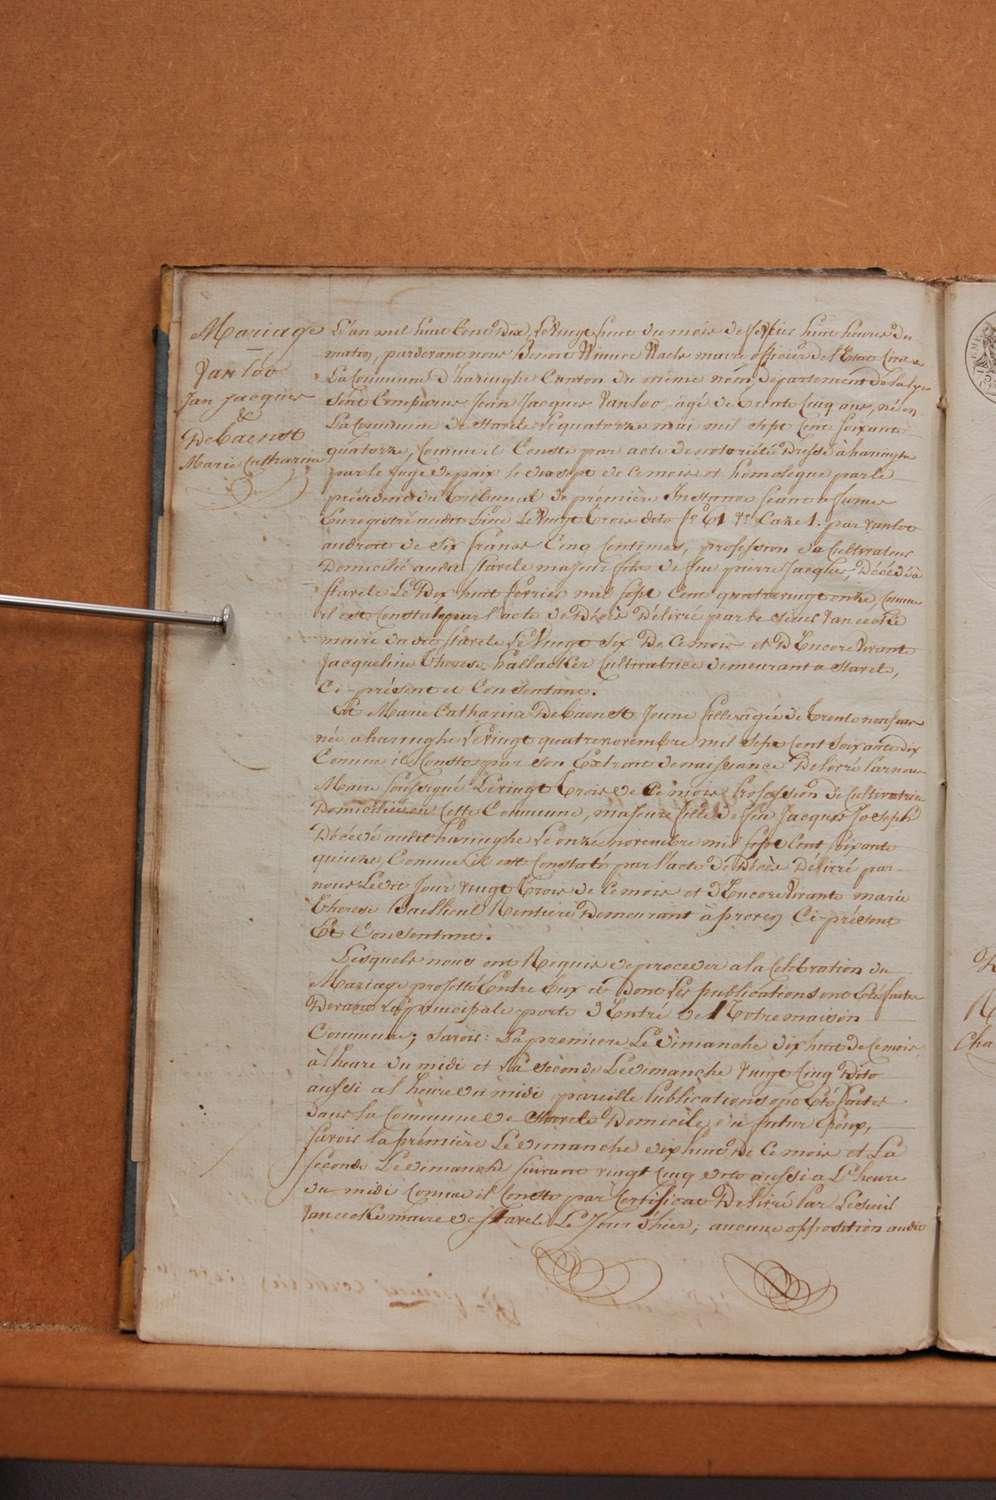 Mariage
Vanloo
Jan Jacques
&
DeBaenst
Marie Catharine
L'an mil huit Cent Dix, Le Vingt huit du mois de fevrier huit heures du
matin, pardevant nous Benoit Winnoc Waels maire officier de l'Etat Civil
La Commune d'haringhe Canton du même nom, Departement de la Lys
Sont Comparus Jean Jacques Vanloo, agé de trente Cinq ans, né en
La Commune de Stavele le quatorze mai mil sept Cent soixante
quatorze, Comme il Conste par acte de notorieté Dressé à haringhe
par le Juge de paix le dix sept de ce mois et homologué par le
président du Tribunal de prémière Instance séant a furnes
Enregistré audit Lieu Le Vingt trois dito f° 61 V° Caze 1: par Vanloo
au droit de Six francs Cinq Centimes, profession de Cultivateur
Domicilié audit Stavele majeur fils de feu pierre Jacques, Décédé à
Stavele Le Dix huit fevrier mil sept Cent quatrevingt onze, Comme
il est Constaté par l'acte de Décès Délivré par le sieur Vaneecke
maire du dit Stavele Le Vingt Six De Ce mois et D'Encore Vivante
Jacqueline Therese hallacker Cultivatrice demeurant a Stavele,
Ci-présent et Consentant.
Et Marie Catharine DeBaenst Jeune fille agée de trente neuf ans
née a haringhe Le Vingt quatre novembre mil sept Cent soixante dix
Comme il Conste par son Extrait de naissance Delivré par nous
Maire soussigné Le Vingt trois de Ce mois profession de Cultivatrice
Domiciliée en Cette Commune, majeure fille de feu Jacques Joseph
Décédé audit haringhe Le onze novembre mil sept Cent soixante
quinze, Comme il est Constaté par l'acte de Décès Délivré par
nous Le dit Jour vingt trois de Ce mois et d'Encore Vivante marie
Therese Bailleul Rentiere Demeurant à proven Ci-présent
Et Consentant.
Lesquels nous ont Requis de proceder a la Célébration du
Mariage projetté Entre Eux et Dont les publications ont été faites
Devant La principale porte d'Entré de Notre maison
Commune; Savoir: La premiere Le Dimanche dix huit de Ce mois
à L'heure du midi et La seconde Le Dimanche Vingt Cinq Dito
aussi a l'heure du midi pareille Publications ont Eté faites
dans la Commune de Stavele Domicile du futur Epoux,
Savoir la prémière Le dimanche dix huit de Ce mois et La
seconde Le dimanche suivant vingt Cinq dito aussi a L'heure
du midi Comme il Conste par Certificat Delivré Par Le sieur
Vaneecke maire de Stavele Le Jour d'hier; aucune opposition audit